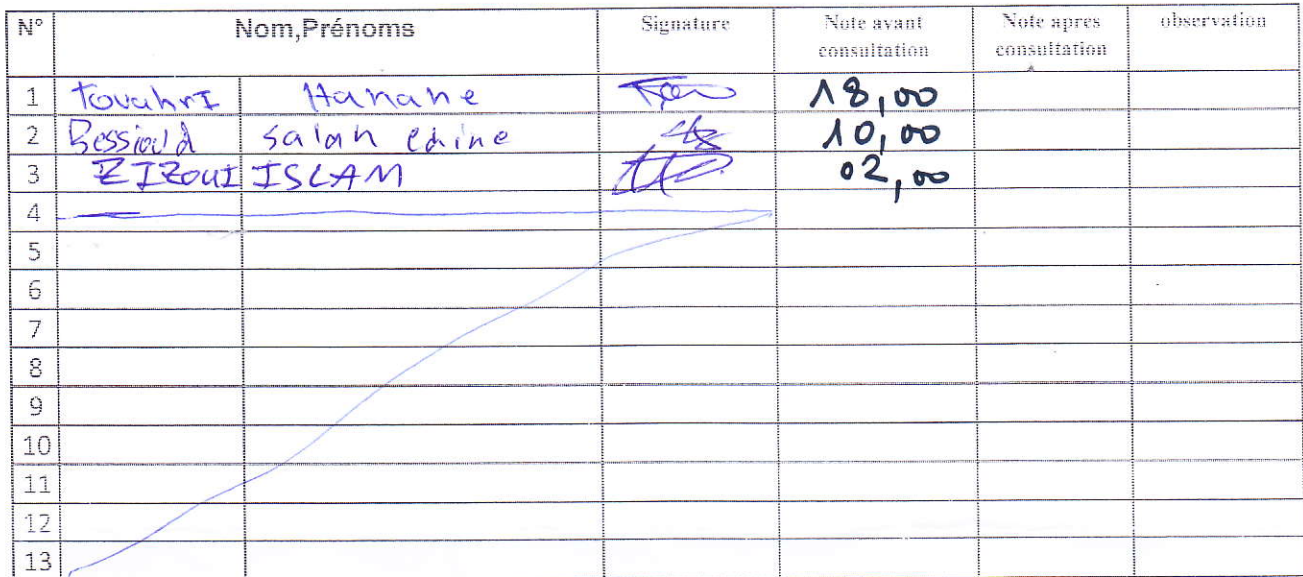 N° Nom,Prénoms Signature Note avant consultation Note apres consultation observation
1 touahrI Hanane 18,00
2 salah 10,00
3 ZIZOUI ISLAM 02,00
4
5
6
7
8
9
10
11
12
13